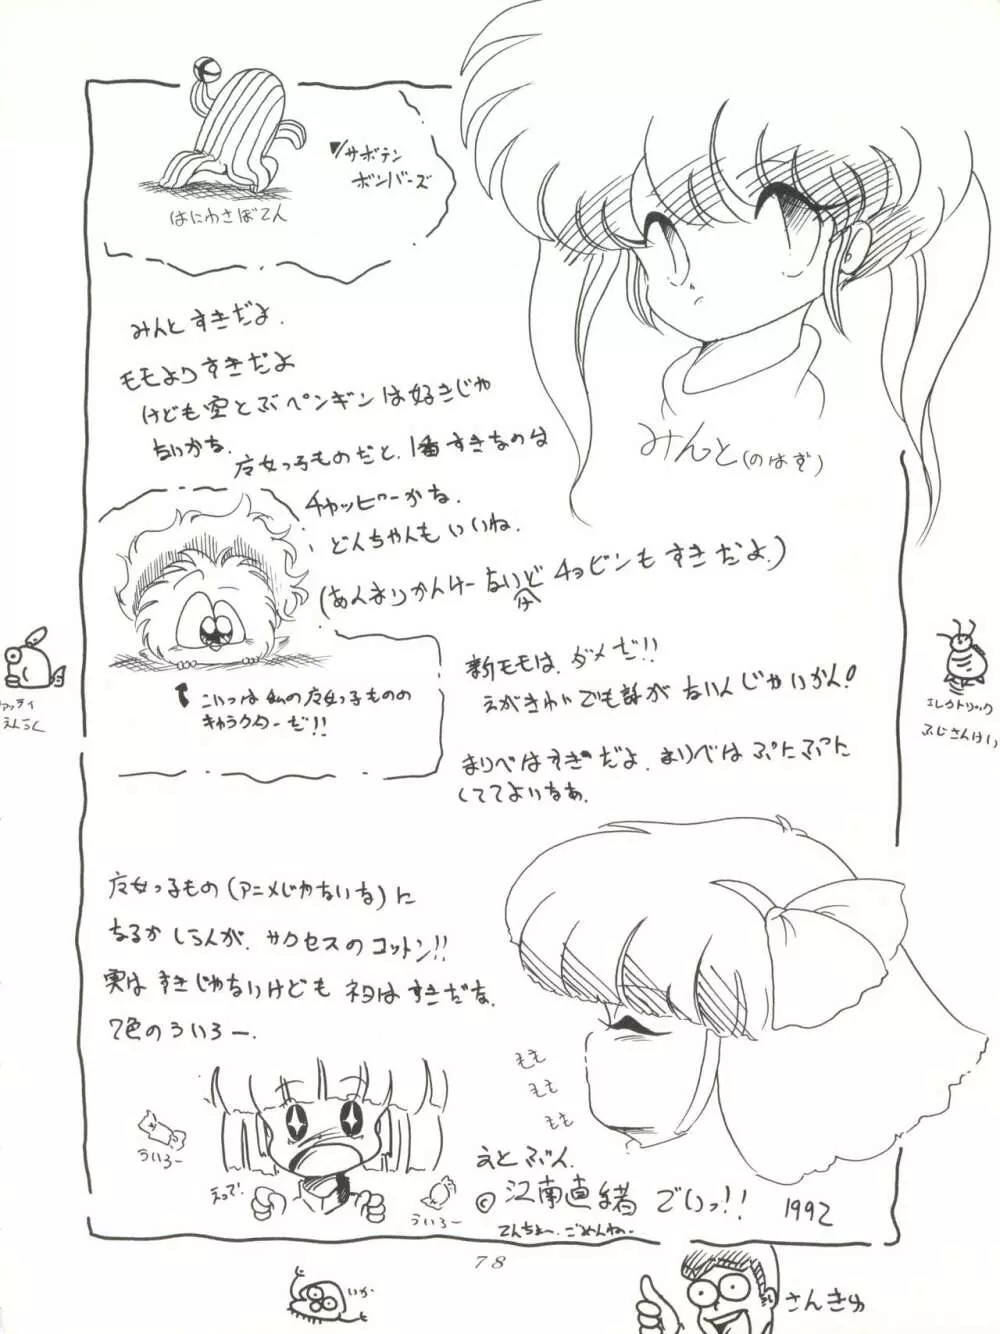 サボテン
ボンバーズ
はにわさぼてん
みんとすきだよ.
モモよりすきだよ
けども空とぶペンギンは好きじゃ
ないかな.
みんと(のはず)
魔女っ子ものだと、1番すきなのは
チャッピーかな.
どんちゃんもいいね.
(あんまりかんけーないけど チョビンもすきだよ.)
新モモは、ダメだ!!
えがきれいでも話がないんじゃいかん!
こいつは私の魔女っ子ものの
キャラクターだ!!
えんらく
エレクトリック
ふじさんけい
まりべはすきだよ. まりべは ぷにぷにた
しててよいなあ.
魔女っ子もの(アニメじゃないな)に
なるかしらんが、サクセスのコットン!!
実はすきじゃないけども ネタはすきだな.
7色のういろー.
もも
もも
もも
ういろー
えっで.
ういろー
えとぶん.
©江南直緒 でいっ!! 1992
てんちょー. ごめんねー..
78
いか
さんきゅ